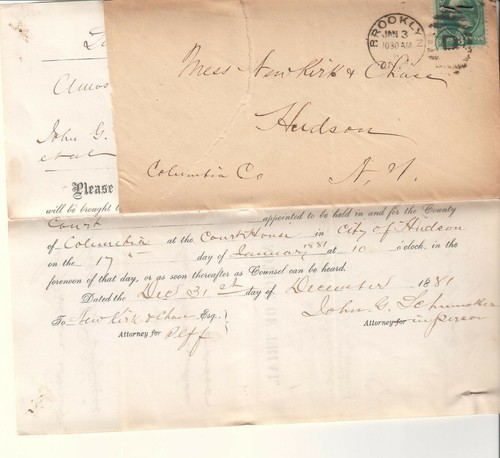 BROOKLYN
JAN 3
1030 AM
Mess Newkirk & Chase
Hudson
Columbia Co N. Y.
Amos
John G.
et al
Please
will be brought
Court appointed to be held in and for the County
of Columbia at the Court House in City of Hudson
on the 17th day of January, 1881 at 10 o'clock, in the
forenoon of that day, or as soon thereafter as Counsel can be heard.
Dated the Dec 31st day of December 1881
To Newkirk & Chase Esq.
Attorney for Plff
John G. Schumaker
Attorney for in person